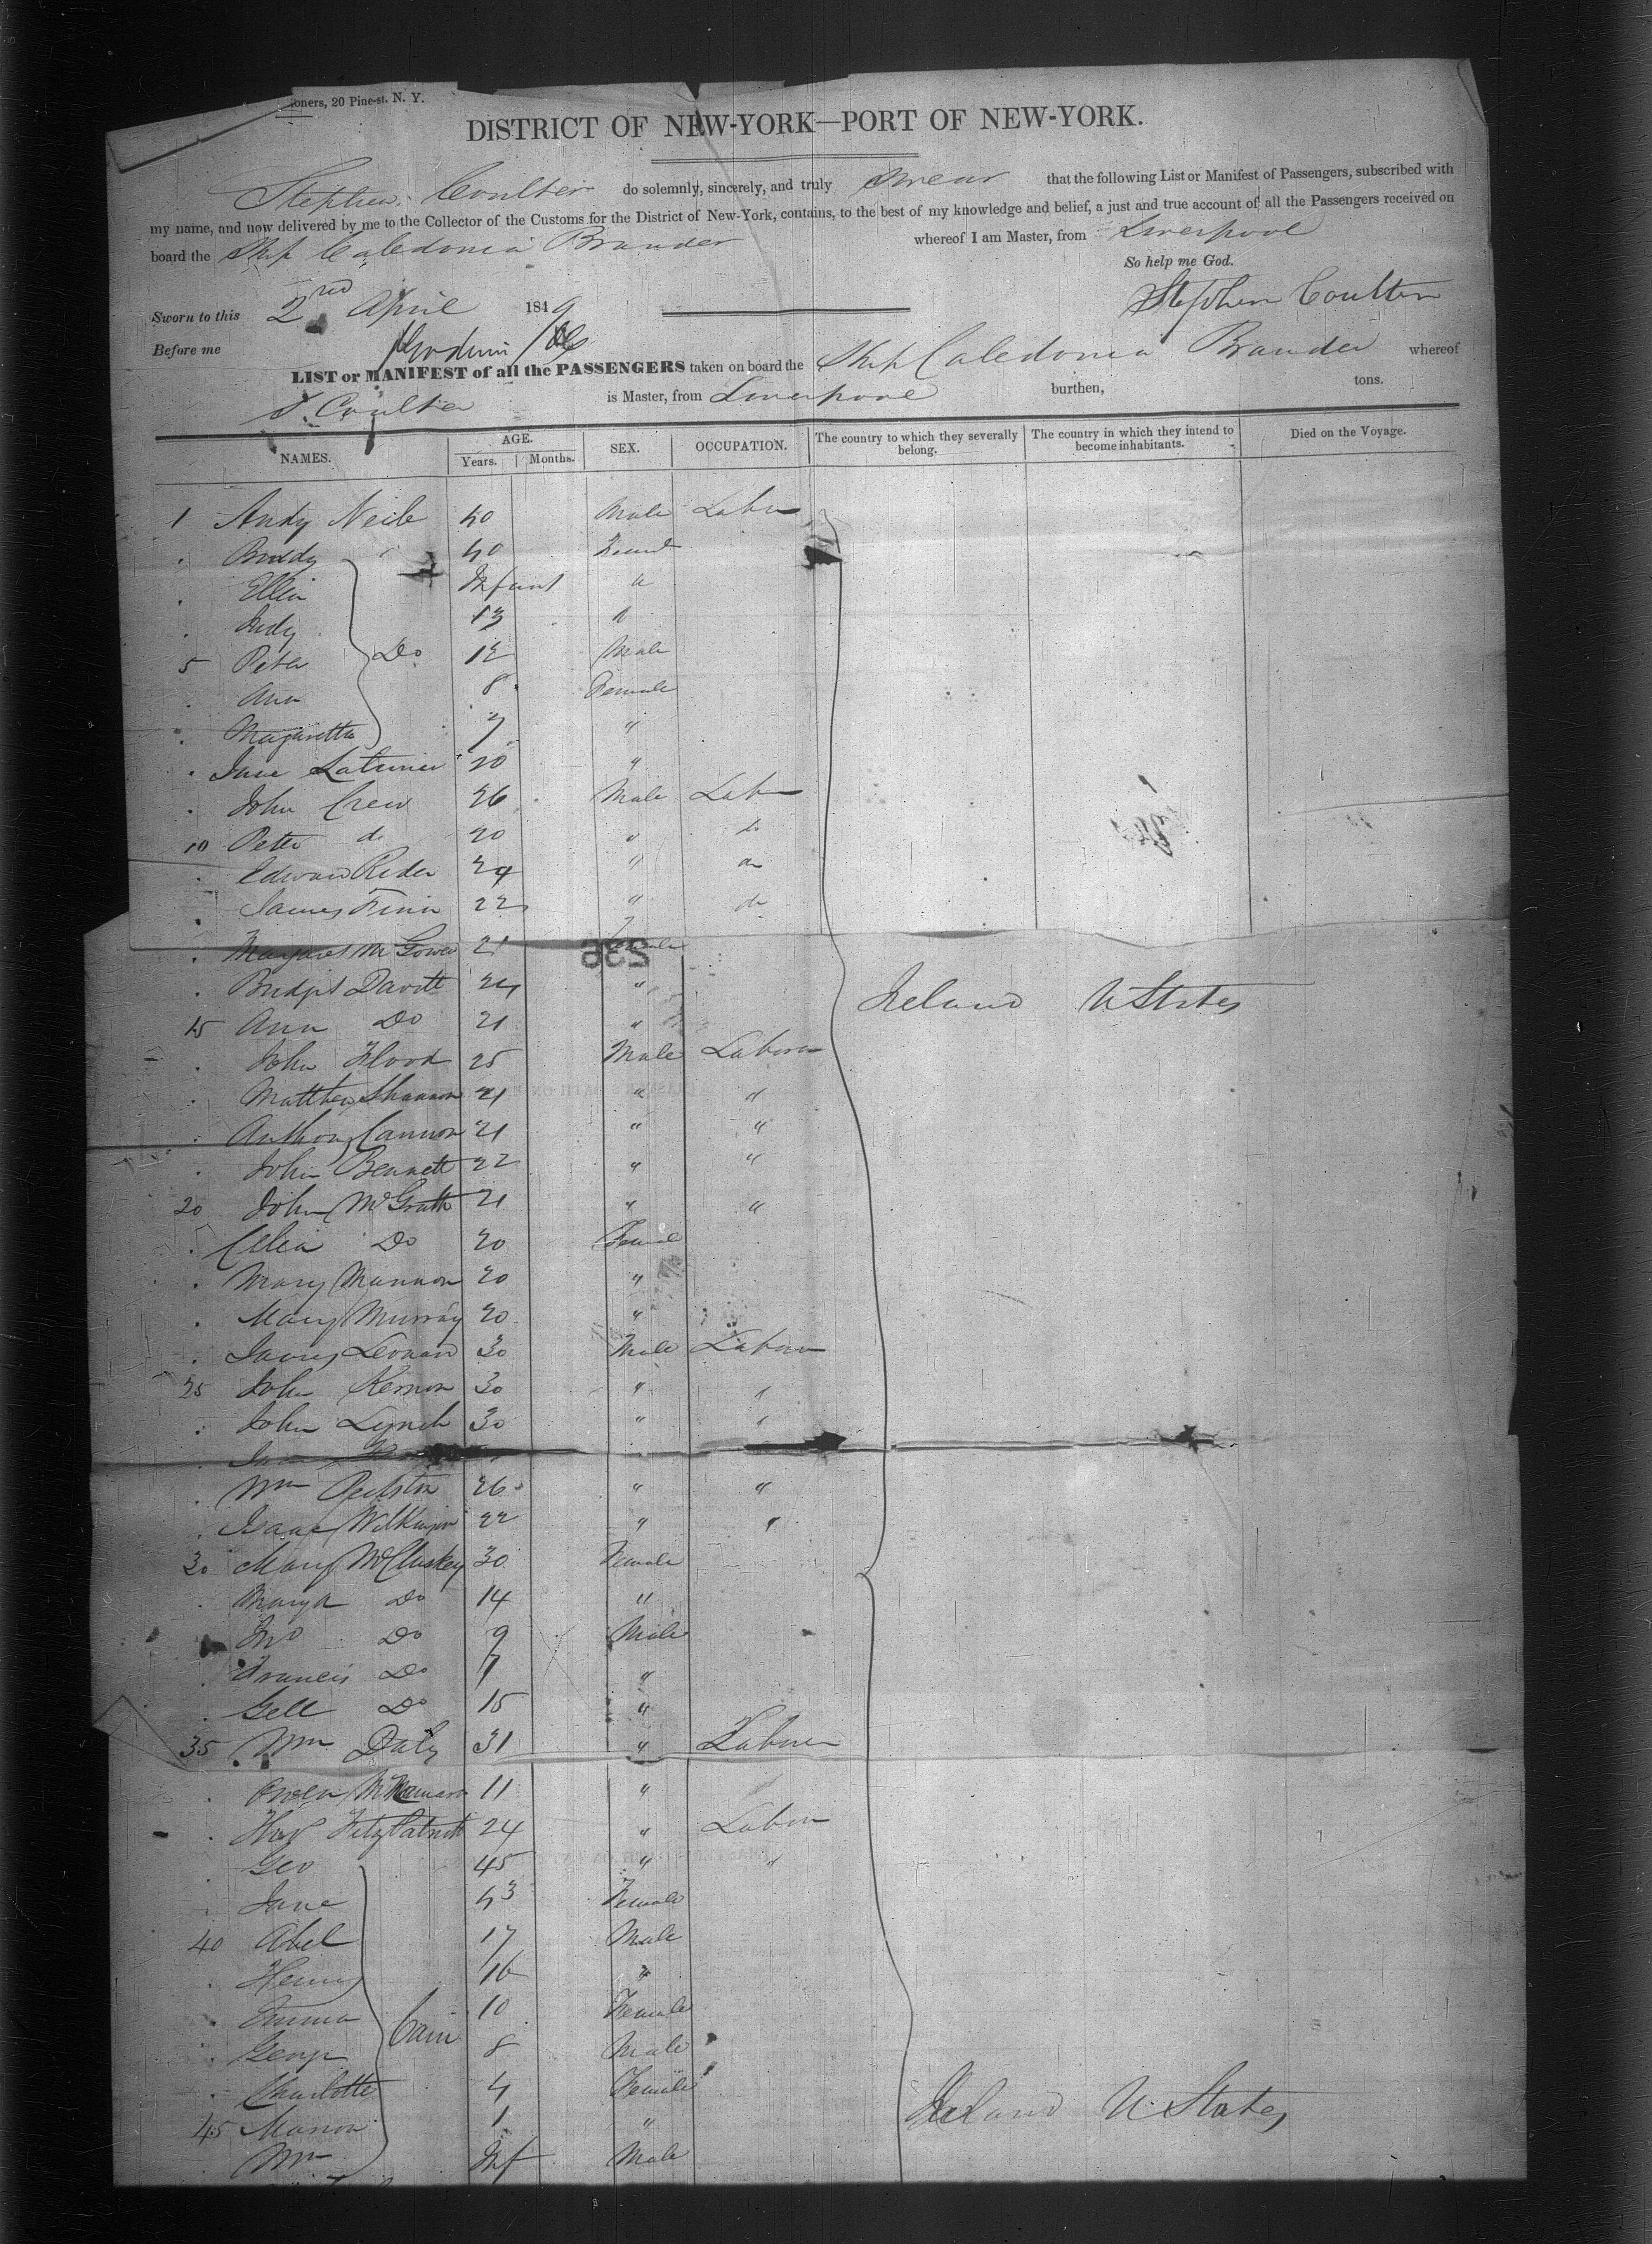 ioners, 20 Pine-st. N. Y.
DISTRICT OF NEW-YORK—PORT OF NEW-YORK.
Stephen Coulter do solemnly, sincerely, and truly swear that the following List or Manifest of Passengers, subscribed with
my name, and now delivered by me to the Collector of the Customs for the District of New-York, contains, to the best of my knowledge and belief, a just and true account of all the Passengers received on
board the Ship Caledonia Brander whereof I am Master, from Liverpool
So help me God.
Sworn to this 2nd April 1849 Stephen Coulter
Before me
LIST or MANIFEST of all the PASSENGERS taken on board the Ship Caledonia Brander whereof
S. Coulter is Master, from Liverpool burthen, tons.
NAMES. AGE. Years. Months. SEX. OCCUPATION. The country to which they severally belong. The country in which they intend to become inhabitants. Died on the Voyage.
1 Andy Neile 40 Male Labr
Briddy 40 Femal
Ellen Infant "
Judy 13 "
5 Peter Do 12 Male
Ann 8 Female
Margaretta 7 "
Jane Latimer 20 "
John Crew 26 Male Labr
10 Peter do 20 " do
Edward Rider 24 " do
James Finn 22 " do
Margaret McGowen 21 Female
236
Bridgit Davitt 24 "
Ireland U States
15 Ann Do 21 "
John Flood 25 Male Laborer
Matthew Shannon 21 " "
Anthony Cannon 21 " "
John Bennett 22 " "
20 John McGrath 21 " "
Celia Do 20 Femal
Mary Mannon 20 "
Mary Murray 20 "
James Leonard 30 Male Laborer
25 John Kernon 30 " "
John Lynch 30 " "
Wm 26 " "
Isaac Wilkinson 22 " "
30 Mary McCluskey 30 Female
Mary A Do 14 "
Jno Do 9 Male
Francis Do 7 "
Gell Do 15 "
35 Wm Daly 31 " Laborer
Owen McNamara 11 "
Thos Fitzpatrick 24 " Labor
Geo 45 " "
Jane 43 Female
40 Abel 17 Male
Henry 16 "
Emma 10 Female
Cain
George 8 Male
Charlotte 4 Female
Ireland U States
45 Marion 1 "
Wm Inf Male